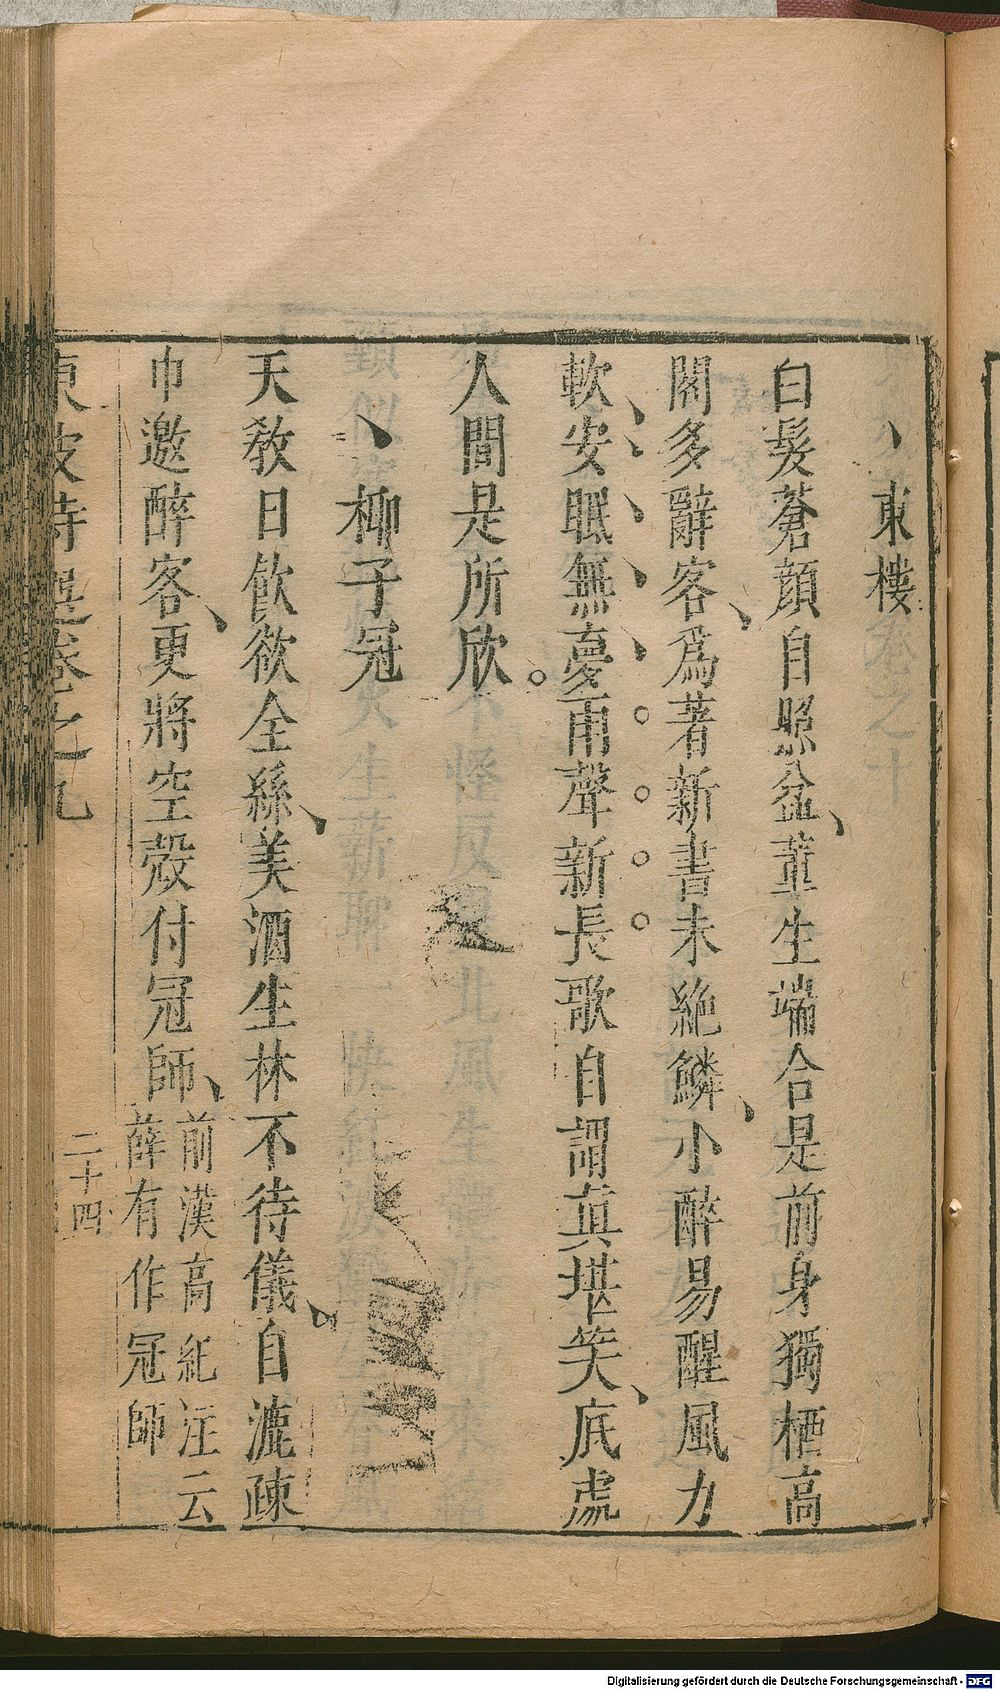 東樓
白髮蒼顔自照盆董生端合是前身獨栖高
閣多辭客爲著新書未絶鱗小醉易醒風力
軟安眠無夢雨聲新長歌自謂真堪笑底處
人間是所欣
椰子冠
天教日飲欲全絲美酒生林不待儀自漉疎
巾邀醉客更將空殼付冠師前漢高紀注云
薛有作冠師
東坡詩選卷之九
二十四
Digitalisierung gefördert durch die Deutsche Forschungsgemeinschaft - DFG